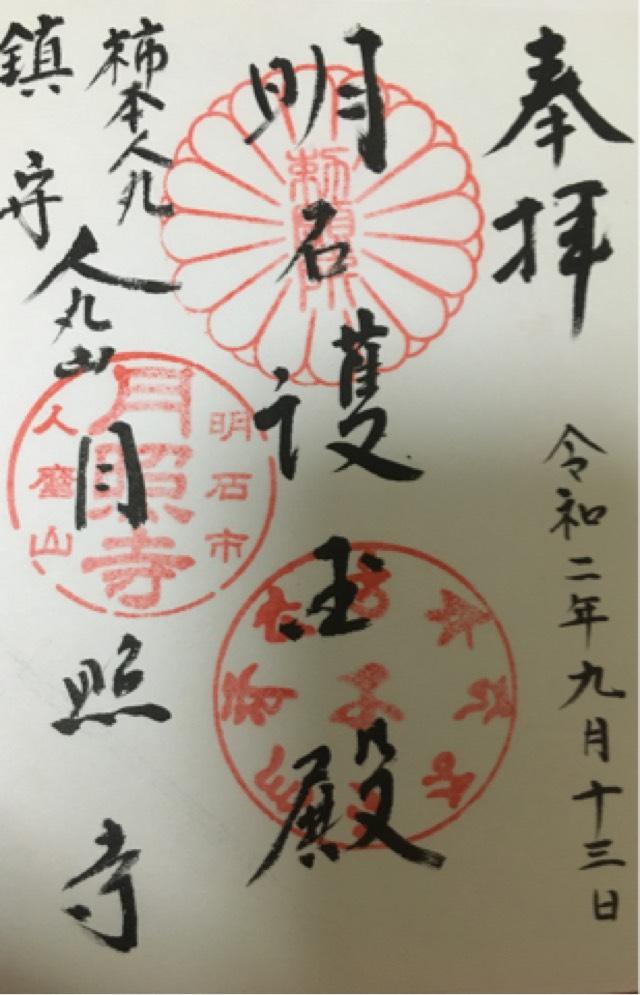 奉拝
令和二年九月十三日
明石護王殿
柿本人丸
鎮守
人丸山
月照寺
勅願所
明石市
月照寺
人麿山